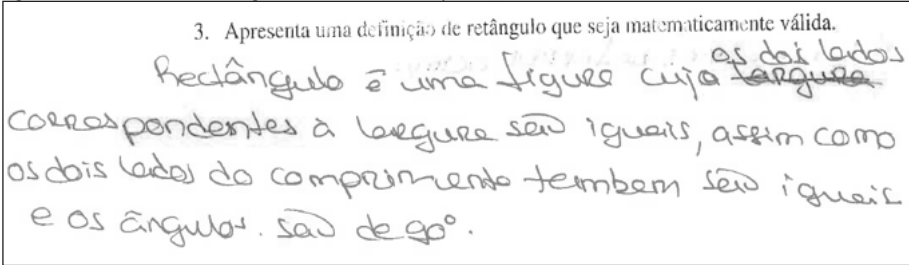 3. Apresenta uma definição de retângulo que seja matematicamente válida.
os dois lados
Rectângulo é uma figura cuja largura
correspondentes à largura são iguais, assim como
os dois lados do comprimento tembem são iguais
e os ângulos. são de 90°.